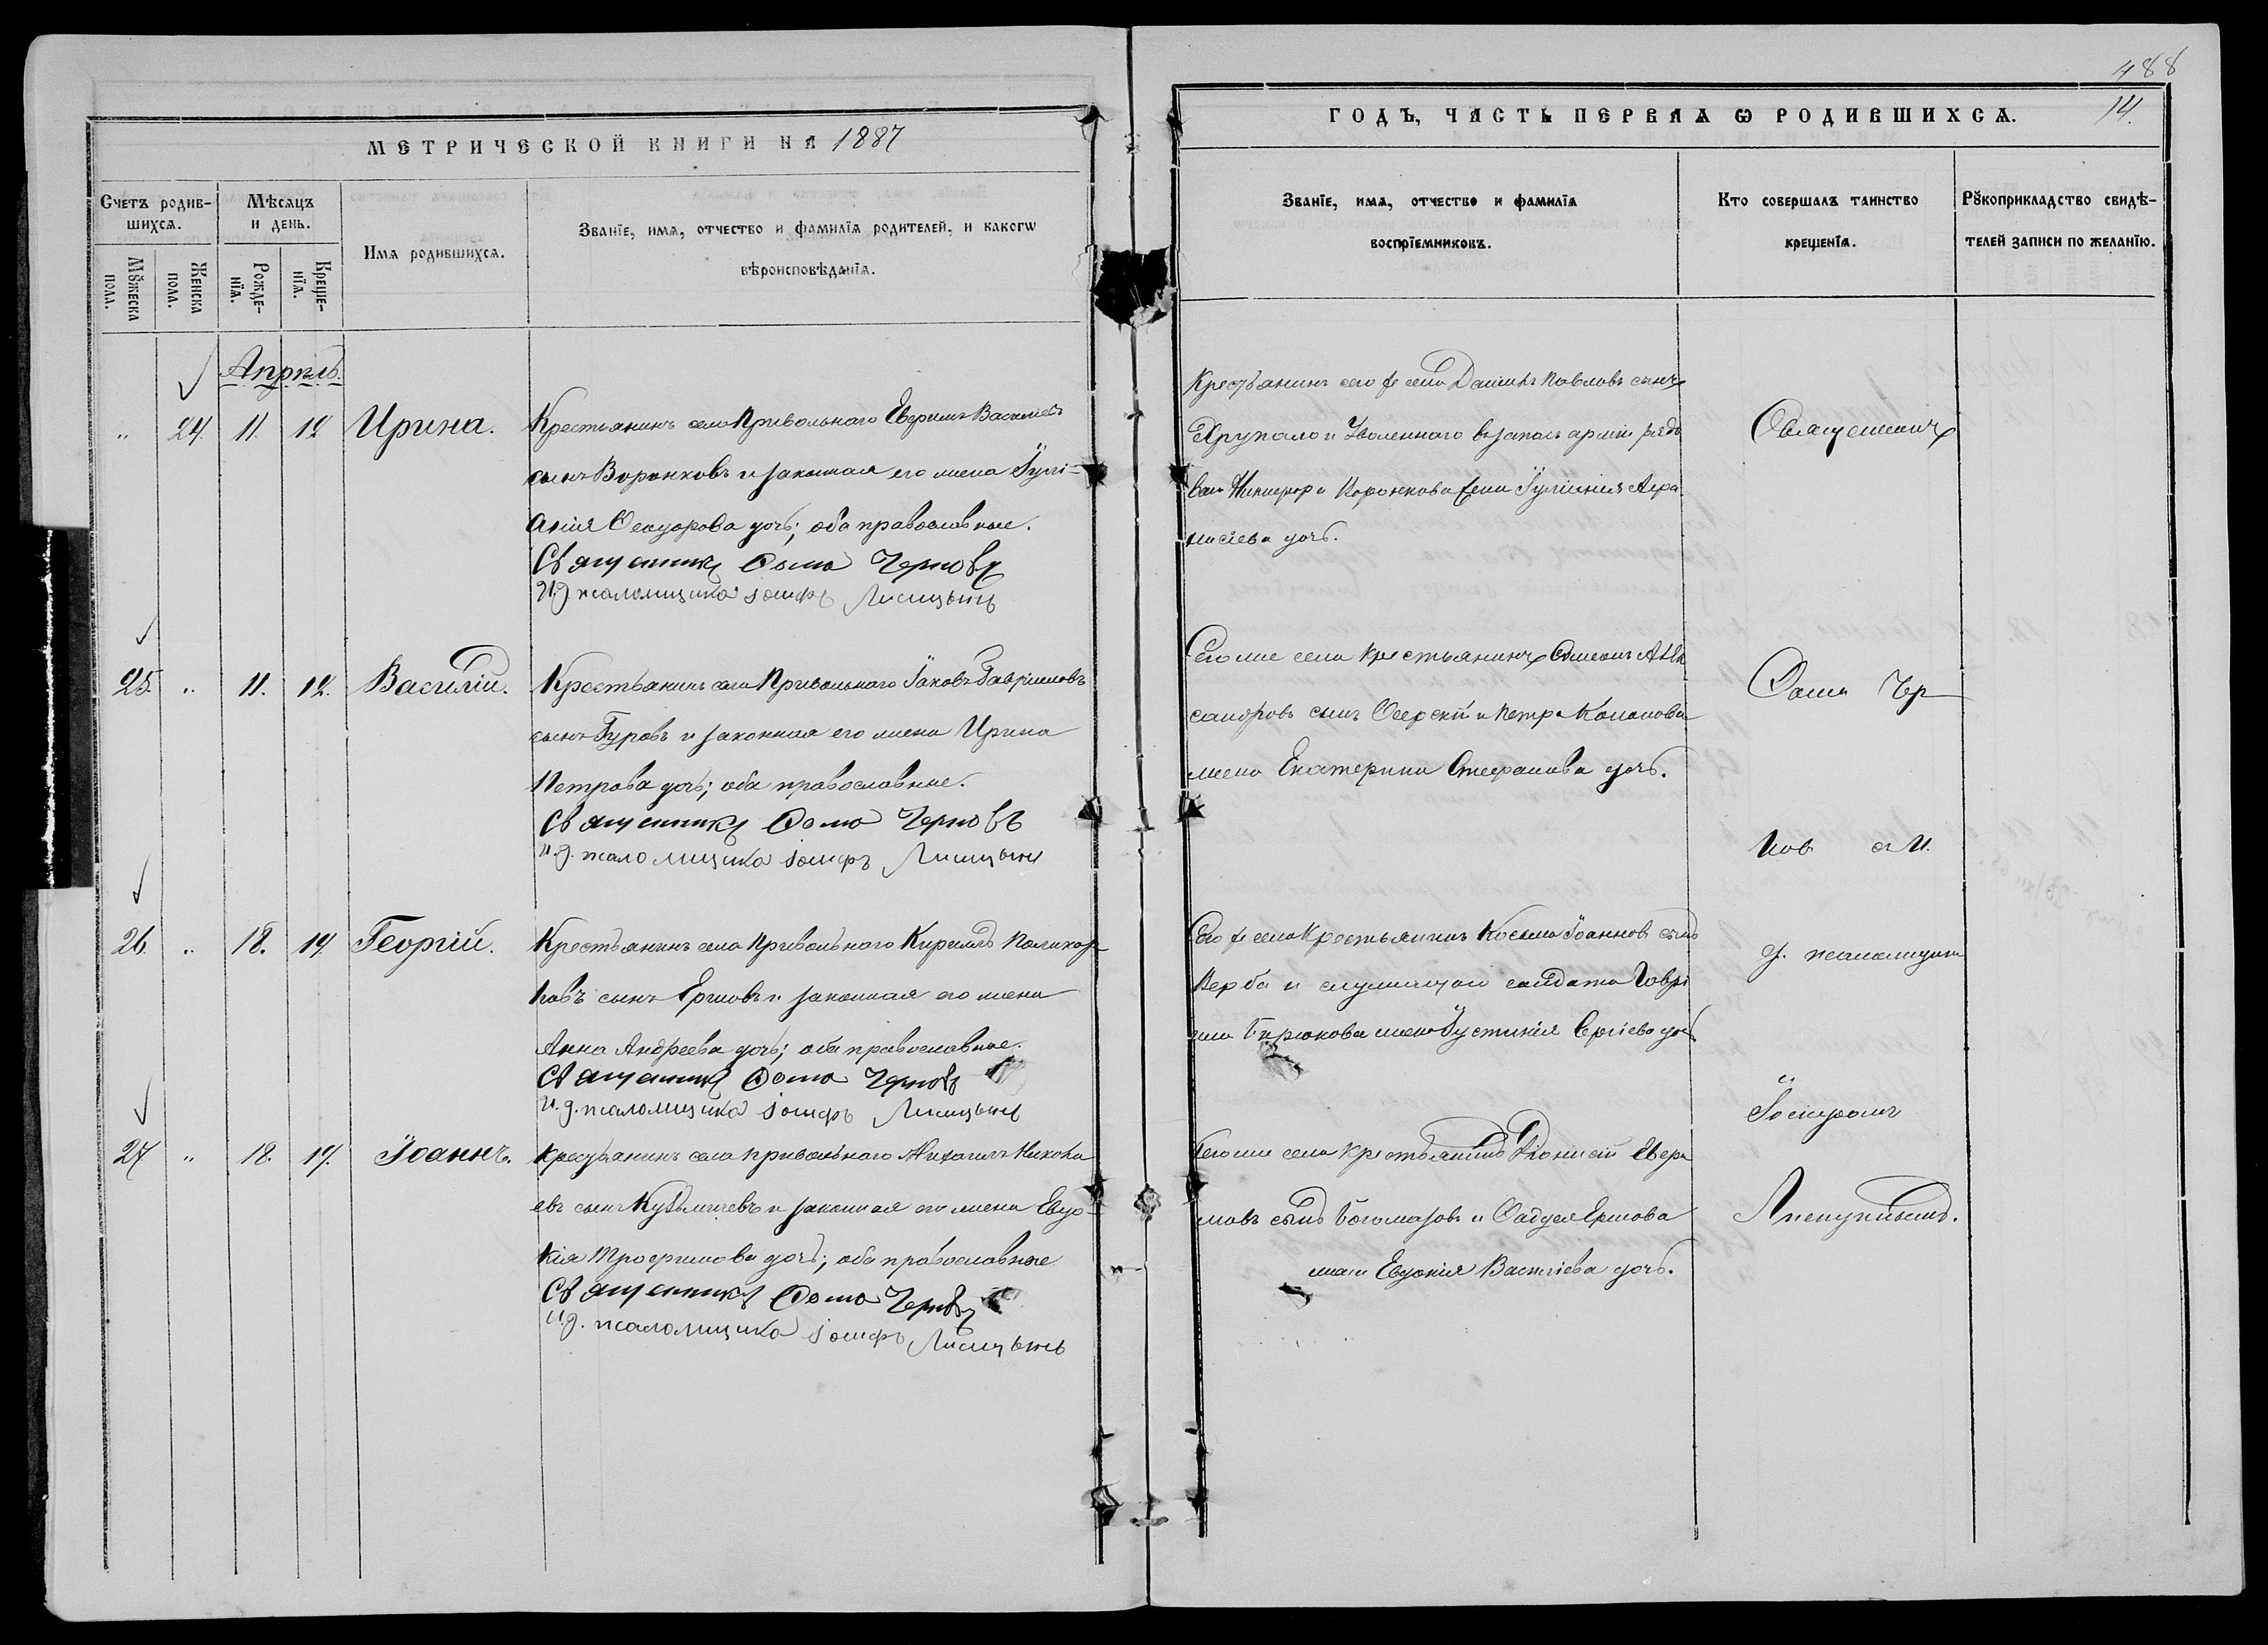 488
14.
МЕТРИЧЕСКОЙ КНИГИ НА 1887
ГОДЪ, ЧАСТЬ ПЕРВАѦ Ѡ РОДИВШИХСѦ.
Счетъ родив-
шихсѧ.
Мѣсѧцъ
и день.
Имѧ родившихсѧ.
Званїе, имѧ, отчество и фамилїѧ родителей, и какогѡ
вѣроисповѣданїѧ.
Мꙋжеска
пола.
Женска
пола.
Рожде-
нїѧ.
Креще-
нїѧ.
Званїе, имѧ, отчество и фамилїѧ
воспрїемниковъ.
Кто совершалъ таинство
крещенїѧ.
Рꙋкоприкладство свидѣ-
телей записи по желанїю.
Апрѣль.
„ 24. 11. 12 Ирина.
Крестьянинъ села Привольнаго Евфимъ Васильевъ
сынъ Воронковъ и законная его жена Іулі-
анія Ѳеодорова дочь; оба православные.
Священникъ Ѳома Черновъ
И.д. псаломщика Іосифъ Лисицынъ
Крестьянинъ сего же села Даніилъ Павловъ сынъ
Хрупало и Уволеннаго въ запасъ арміи рядо
ваго Никифора Воронкова жена Іулианія Аѳа
насіева дочь.
Священникъ
25. „ 11. 12. Василій.
Крестьянинъ села Привольнаго Іаковъ Гавріиловъ
сынъ Гуровъ и законная его жена Ирина
Петрова дочь; оба православные.
Священникъ Ѳома Черновъ
и.д. псаломщика Іосифъ Лисицынъ
Того же села крестьянинъ Симеонъ Алек
сандровъ сынъ и Петра Кононова
жена Екатерина Стефанова дочь.
Ѳома Чер
новъ и И.
26. „ 18. 19. Георгій.
Крестьянинъ села Привольнаго Кириллъ Поликар
повъ сынъ Ершовъ и законная его жена
Анна Андреева дочь; оба православные.
Священникъ Ѳома Черновъ
И.д. псаломщика Іосифъ Лисицынъ
Того же села Крестьянинъ Косьма Іоанновъ сынъ
Верба и служащаго солдата Гаврі
ила Бирюкова жена Іустинія Сергіева дочь
д. псаломщика
27 „ 18. 19. Іоаннъ.
Крестьянинъ села Привольнаго Михаилъ Никола
евъ сынъ Кузьмичевъ и законная его жена Евдо-
кія Трофимова дочь; оба православные
Священникъ Ѳома Черновъ
И.д. псаломщика Іосифъ Лисицынъ
Того же села Крестьянинъ Діонисій Евфи
мовъ сынъ Богомазовъ и Фаддея Ершова
жена Евдокія Васильева дочь.
Іосифомъ
Лисицынымъ.